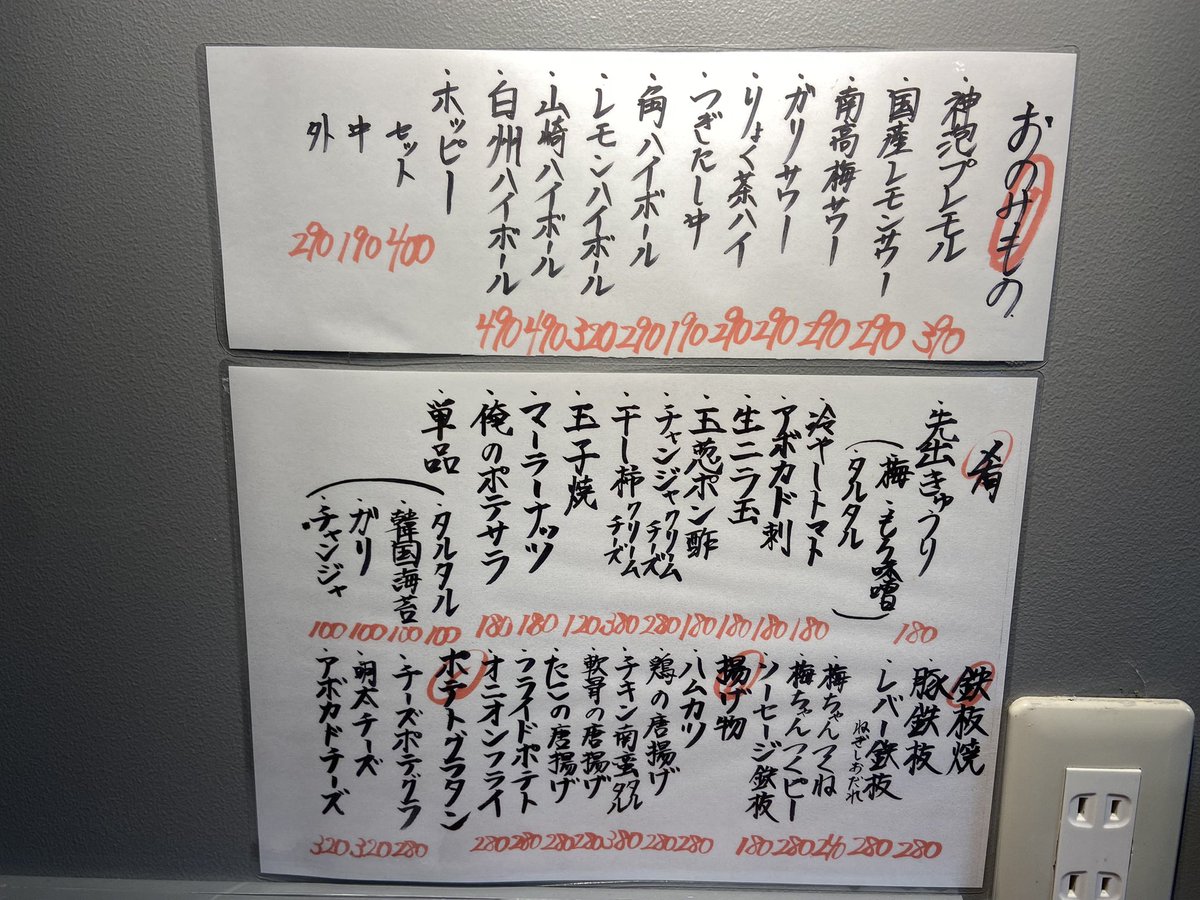 おのみもの
・神泡プレモル 390
・国産レモンサワー 290
・南高梅サワー 290
・ガリサワー 290
・りょく茶ハイ 290
・つぎたし中 190
・角ハイボール 290
・レモンハイボール 320
・山崎ハイボール 490
・白州ハイボール 490
・ホッピー
セット 400
中 190
外 290
肴
・先出きゅうり 180
(梅・もろ味噌
・タルタル)
・冷やしトマト 180
・アボカド刺 180
・生ニラ玉 180
・玉葱ポン酢 180
・チャンジャクリームチーズ 280
・干し柿クリームチーズ 380
・玉子焼 120
・マーラーナッツ 180
・俺のポテサラ 180
・単品
(・タルタル 100
・韓国海苔 100
・ガリ 100
・チャンジャ 100
鉄板焼
・豚鉄板 280
・レバー鉄板 ねぎしおだれ 280
・梅ちゃんつくね 240
・梅ちゃんつくピー 280
・ソーセージ鉄板 180
揚げ物
・ハムカツ 280
・鶏の唐揚げ 280
・チキン南蛮タルタル 380
・軟骨の唐揚げ 280
・たこの唐揚げ 280
・フライドポテト 280
・オニオンフライ 280
ポテトグラタン
・チーズポテグラ 280
・明太チーズ 320
・アボカドチーズ 320